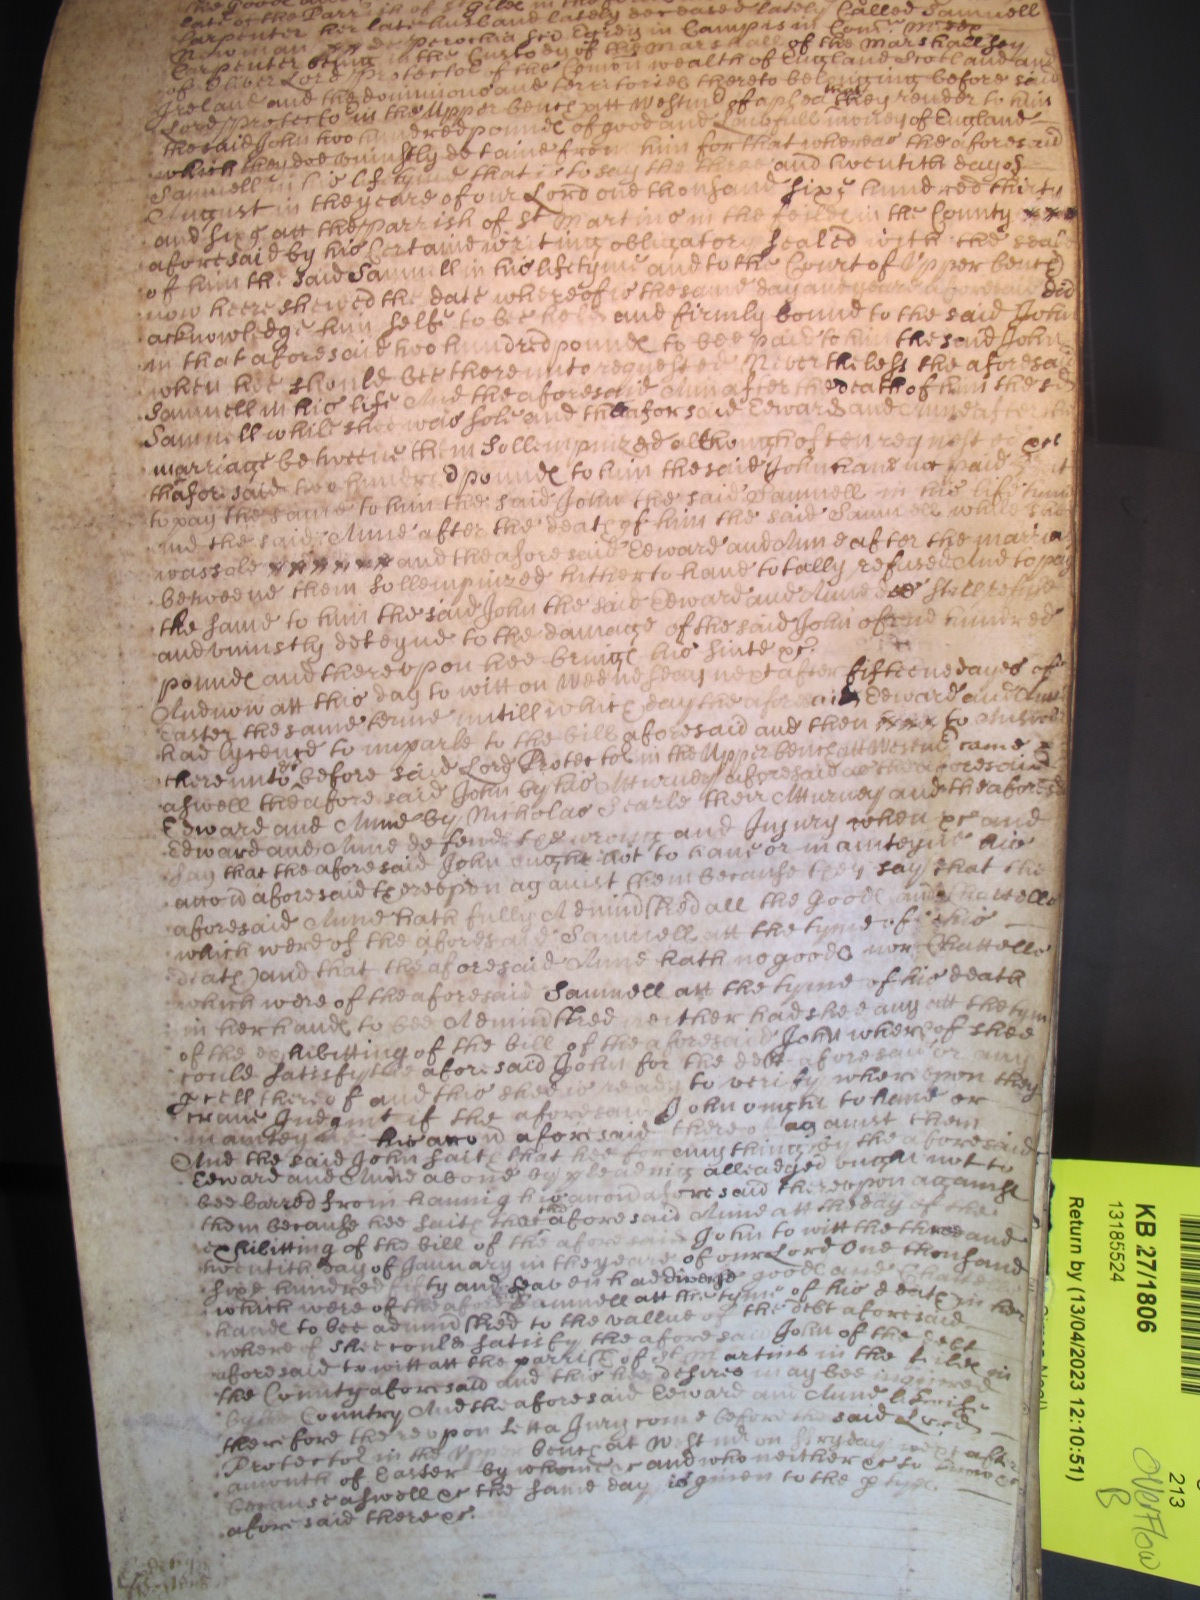 the good
late of the Parrish of St Giles in the
Carpenter her late husband lately deceased lately Called Samuell
Newman de perochia Sci Egidij in Campis in Com Midds
Carpenter being in the Custody of the Marshall of the Marshallsey
of Oliver Lord Protector of the Comon wealth of England Scotland and
Ireland and the dominions and territories thereto belonging before said
Lord Protector in the Upper bench att Westm of a plea that they render to him
the said John two hundred pounds of good and Lawfull money of England
which they doe uniustly detaine from him for that whereas the aforesaid
Samuell in his lifetyme that is to say the three and twentith day of
August in the yeare of our Lord one thousand sixe hundred thirty
and sixe att the Parrish of St Martins in the feilds in the County
aforesaid by his Certaine writing obligatory Sealed with the seale
of him the said Samuell in his lifetyme and to the Court of Upper bench
now heere shewed the date whereof is the same day and yeare aforesaid did
acknowledge him selfe to bee held and firmly bound to the said John
in that aforesaid two hundred pounds to bee paid to him the said John
when hee should bee thereunto requested Neverthelesse the aforesaid
Samuell in his life And the aforesaid Anne after the death of him the sd
Samuell while shee was sole and the aforesaid Edward and Anne after the
marriage betweene them Sollempnized although often requested &c
thaforesaid two hundred pounds to him the said John have not paid but
to pay the same to him the said John the said Samuell in his life tyme
and the said Anne after the death of him the said Samuell while shee
was sole and the aforesaid Edward and Anne after the marriage
betweene them sollempnized hitherto have totally refused And to pay
the same to him the said John the said Edward and Anne doe still refuse
and uniustly deteyne to the damage of the said John of hundred
pounds and thereupon hee brings his suite &c.
And now att this day to witt on Wednesday next after fifteene dayes of
Easter the same terme untill which day the aforesaid Edward and Anne
had lycence to imparle to the bill aforesaid and then to Answere
thereunto before said Lord Protector in the Upper bench att Westm came
aswell the aforesaid John by his Atturney aforesaid as the aforesaid
Edward and Anne by Nicholas Searle their Atturney and the aforesd
Edward and Anne defend the wrong and Iniury when &c and
say that the aforesaid John ought not to have or mainteyne his
accon aforesaid thereupon against them because they say that the
aforesaid Anne hath fully Adminstred all the goods and Chattells
which were of the aforesaid Samuell att the tyme of his
death and that the aforesaid Anne hath no goods nor Chattells
which were of the aforesaid Samuell att the tyme of his death
in her hands to bee Adminstred neither had shee any att the tyme
of the exhibitting of the bill of the aforesaid John whereof shee
could satisfy the aforesaid John for the debt aforesaid or any
p cell thereof and this shee is ready to verify whereupon they
crave Iudgmt if the aforesaid John ought to have or
mainteyne his accon aforesaid thereof against them
And the said John saith that hee for any thing by the aforesaid
Edward and Anne above by pleading alleadged ought not to
bee barred from haveing his accon aforesaid thereupon against
them because hee saith that the aforesaid Anne att the day of the
exhibitting of the bill of the aforesaid John to witt the three and
twentith day of January in the yeare of our Lord One thousand
sixe hundred fifty and seaven had diverse goods and Chattells
which were of the aforesd Samuell att the tyme of his death in her
hands to bee adminstred to the vallue of the debt aforesaid
whereof shee could satisfy the aforesaid John of the debt
aforesaid to witt att the parrish of St Martins in the feilds in
the County aforesaid and this hee desires may bee inquired
by the Country And the aforesaid Edward and Anne likewise
therefore thereupon lett a Jury come before the said Lord
Protector in the Upper bench at Westm on fryday next after
a month of Easter by whome &c and who neither &c to know &c
because aswell &c the same day is given to the p tyes
aforesaid there &c.
KB 27/1806
13185524
Return by (13/04/2023 12:10:51)
213
Overflow
B